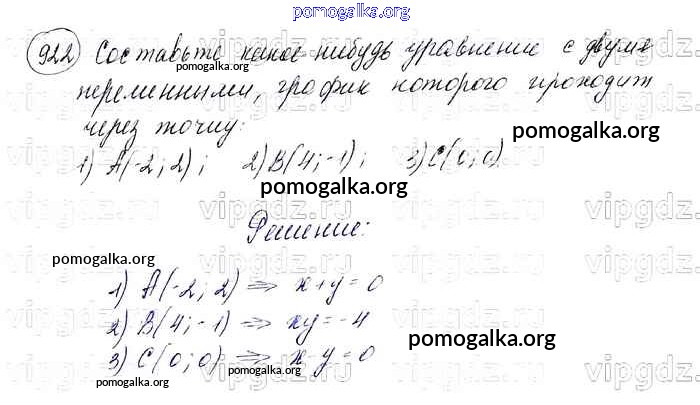 pomogalka.org
922 Составьте какое-нибудь уравнение с двумя
pomogalka.org
переменными, график которого проходит
через точку:
pomogalka.org
1) A(-2; 2); 2) B(4; -1); 3) C(0; 0)
pomogalka.org
vipgdz.ru vipgdz.ru vipgdz.ru vipgdz.ru
Решение:
pomogalka.org
vipgdz.ru vipgdz.ru vipgdz.ru vipgdz.ru
1) A(-2; 2) => x+y=0
2) B(4; -1) => xy=-4
pomogalka.org pomogalka.org
3) C(0; 0) => x-y=0
pomogalka.org pomogalka.org
vipgdz.ru vipgdz.ru vipgdz.ru vipgdz.ru